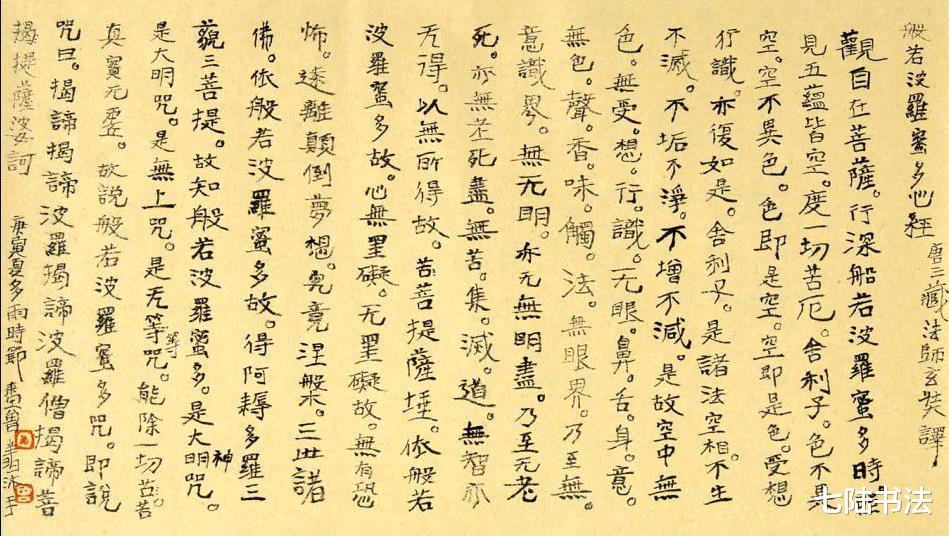 般若波羅蜜多心經 唐三藏法師玄奘譯
觀自在菩薩。行深船若波羅蜜多時。照
見五蘊皆空。度一切苦厄。舍利子。色不異
空。空不異色。色即是空。空即是色。受想
行識。亦復如是。舍利子。是諸法空相。不生
不滅。不垢不淨。不增不減。是故空中無
色。無受。想。行。識。无眼。鼻。舌。身。意。
無色。聲。香。味。觸。法。無眼界。乃至無
意識界。無无明。亦无無明盡。乃至无老
死。亦無老死盡。無苦。集。滅。道。無智亦
无得。以無所得故。苦菩提薩埵。依般若
波羅蜜多故。心無罣礙。无罣礙故。無有恐
怖。遠離顛倒夢想。究竟涅槃。三世諸
佛。依般若波羅蜜多故。得阿耨多羅三
藐三菩提。故知般若波羅蜜多。是大神明咒。
是大明咒。是無上咒。是无等等咒。能除一切苦。苦
真實无虛。故說般若波羅蜜多咒。即說
咒曰。揭諦揭諦波羅揭諦波羅僧揭諦菩
揭提薩婆訶 庚寅夏多雨時節
七陆书法